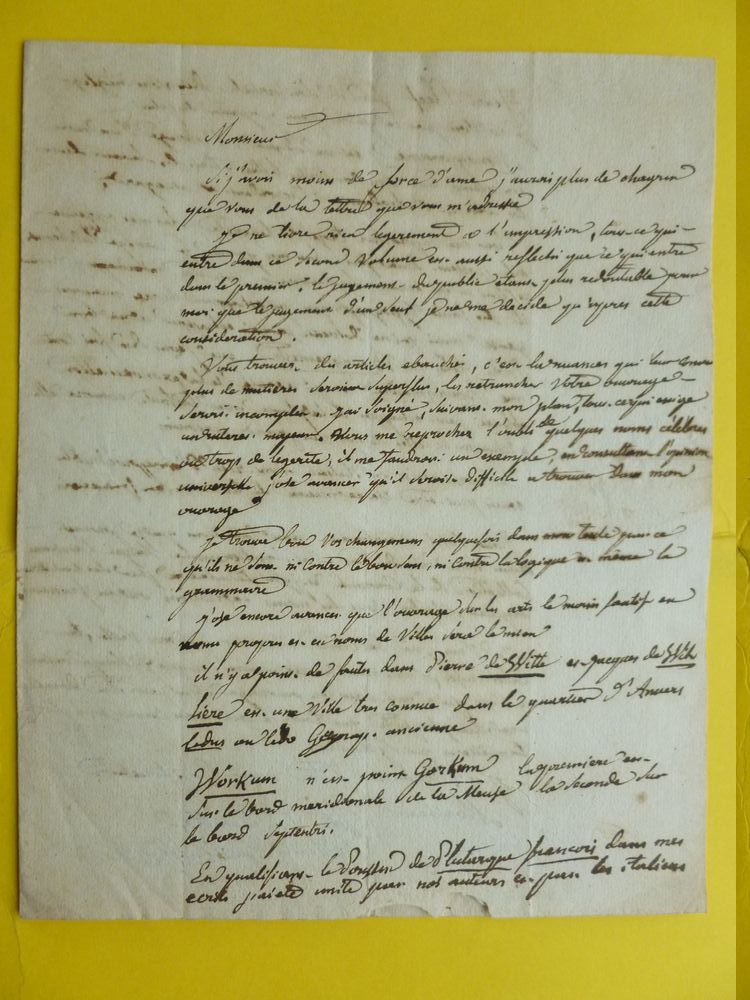 Monsieur
Si j'avois moins de force d'ame, j'aurois plus de chagrin
que vous de la lettre que vous m'adressé
Je ne livre rien legerement a l'impression, tous ce qui
entre dans ce second Volume est aussi reflechi que ce qui entre
dans le premier. le jugement du public etant plus redoutable pour
moi que le jugement d'un seul je ne me decide qu'apres cette
consideration.
Vous trouvez des articles ebauché, c'est la nuances qui leur
plus de matieres seroient superflus, les retrancher Votre ouvrage
seroit incomplet. j'ai soigné, suivant mon plan, tous ce qui exige
un interes majeur. Vous me reprocher l'oubli de quelques noms célébres
ou trop de legereté, il me faudroit un exemple, en consultant l'opinion
universelle j'ose avancer qu'il seroit difficile a trouver dans mon
ouvrage
Je trouve bon Vos changemens quelquefois dans mon texte parce
qu'ils ne sont ni contre le bon sens, ni contre la logique et même la
grammaire
j'ose encore avancer que l'ouvrage sur les arts le moin fautif en
noms propres et en noms de Villes sera le mien
il n'y a point de fautes dans Pierre de Witte et Jacques de Wit
Liere est une Ville tres connue dans le quartier d'Anvers
Ledus ou Ledo Geograp. ancienne
Workum n'est point Gorkum la premiere est
sur le bord meridionale de la Meuse la seconde sur
le bord septentri.
En qualifiant le Poussin de Plutarque françois dans mes
ecrits j'ai eté imité par nos auteurs et par les italiens